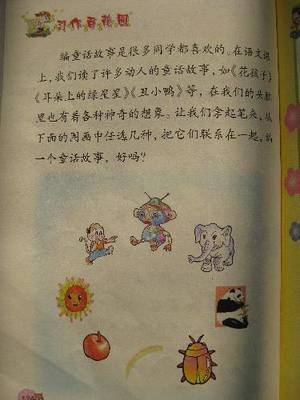 习作百花园
编童话故事是很多同学都喜欢的。在语文课
上，我们读了许多动人的童话故事，如《花孩子》
《耳朵上的绿星星》《丑小鸭》等，在我们的头脑
里也有着各种神奇的想象。让我们拿起笔来，从
下面的图画中任选几种，把它们联系在一起，编
一个童话故事，好吗？